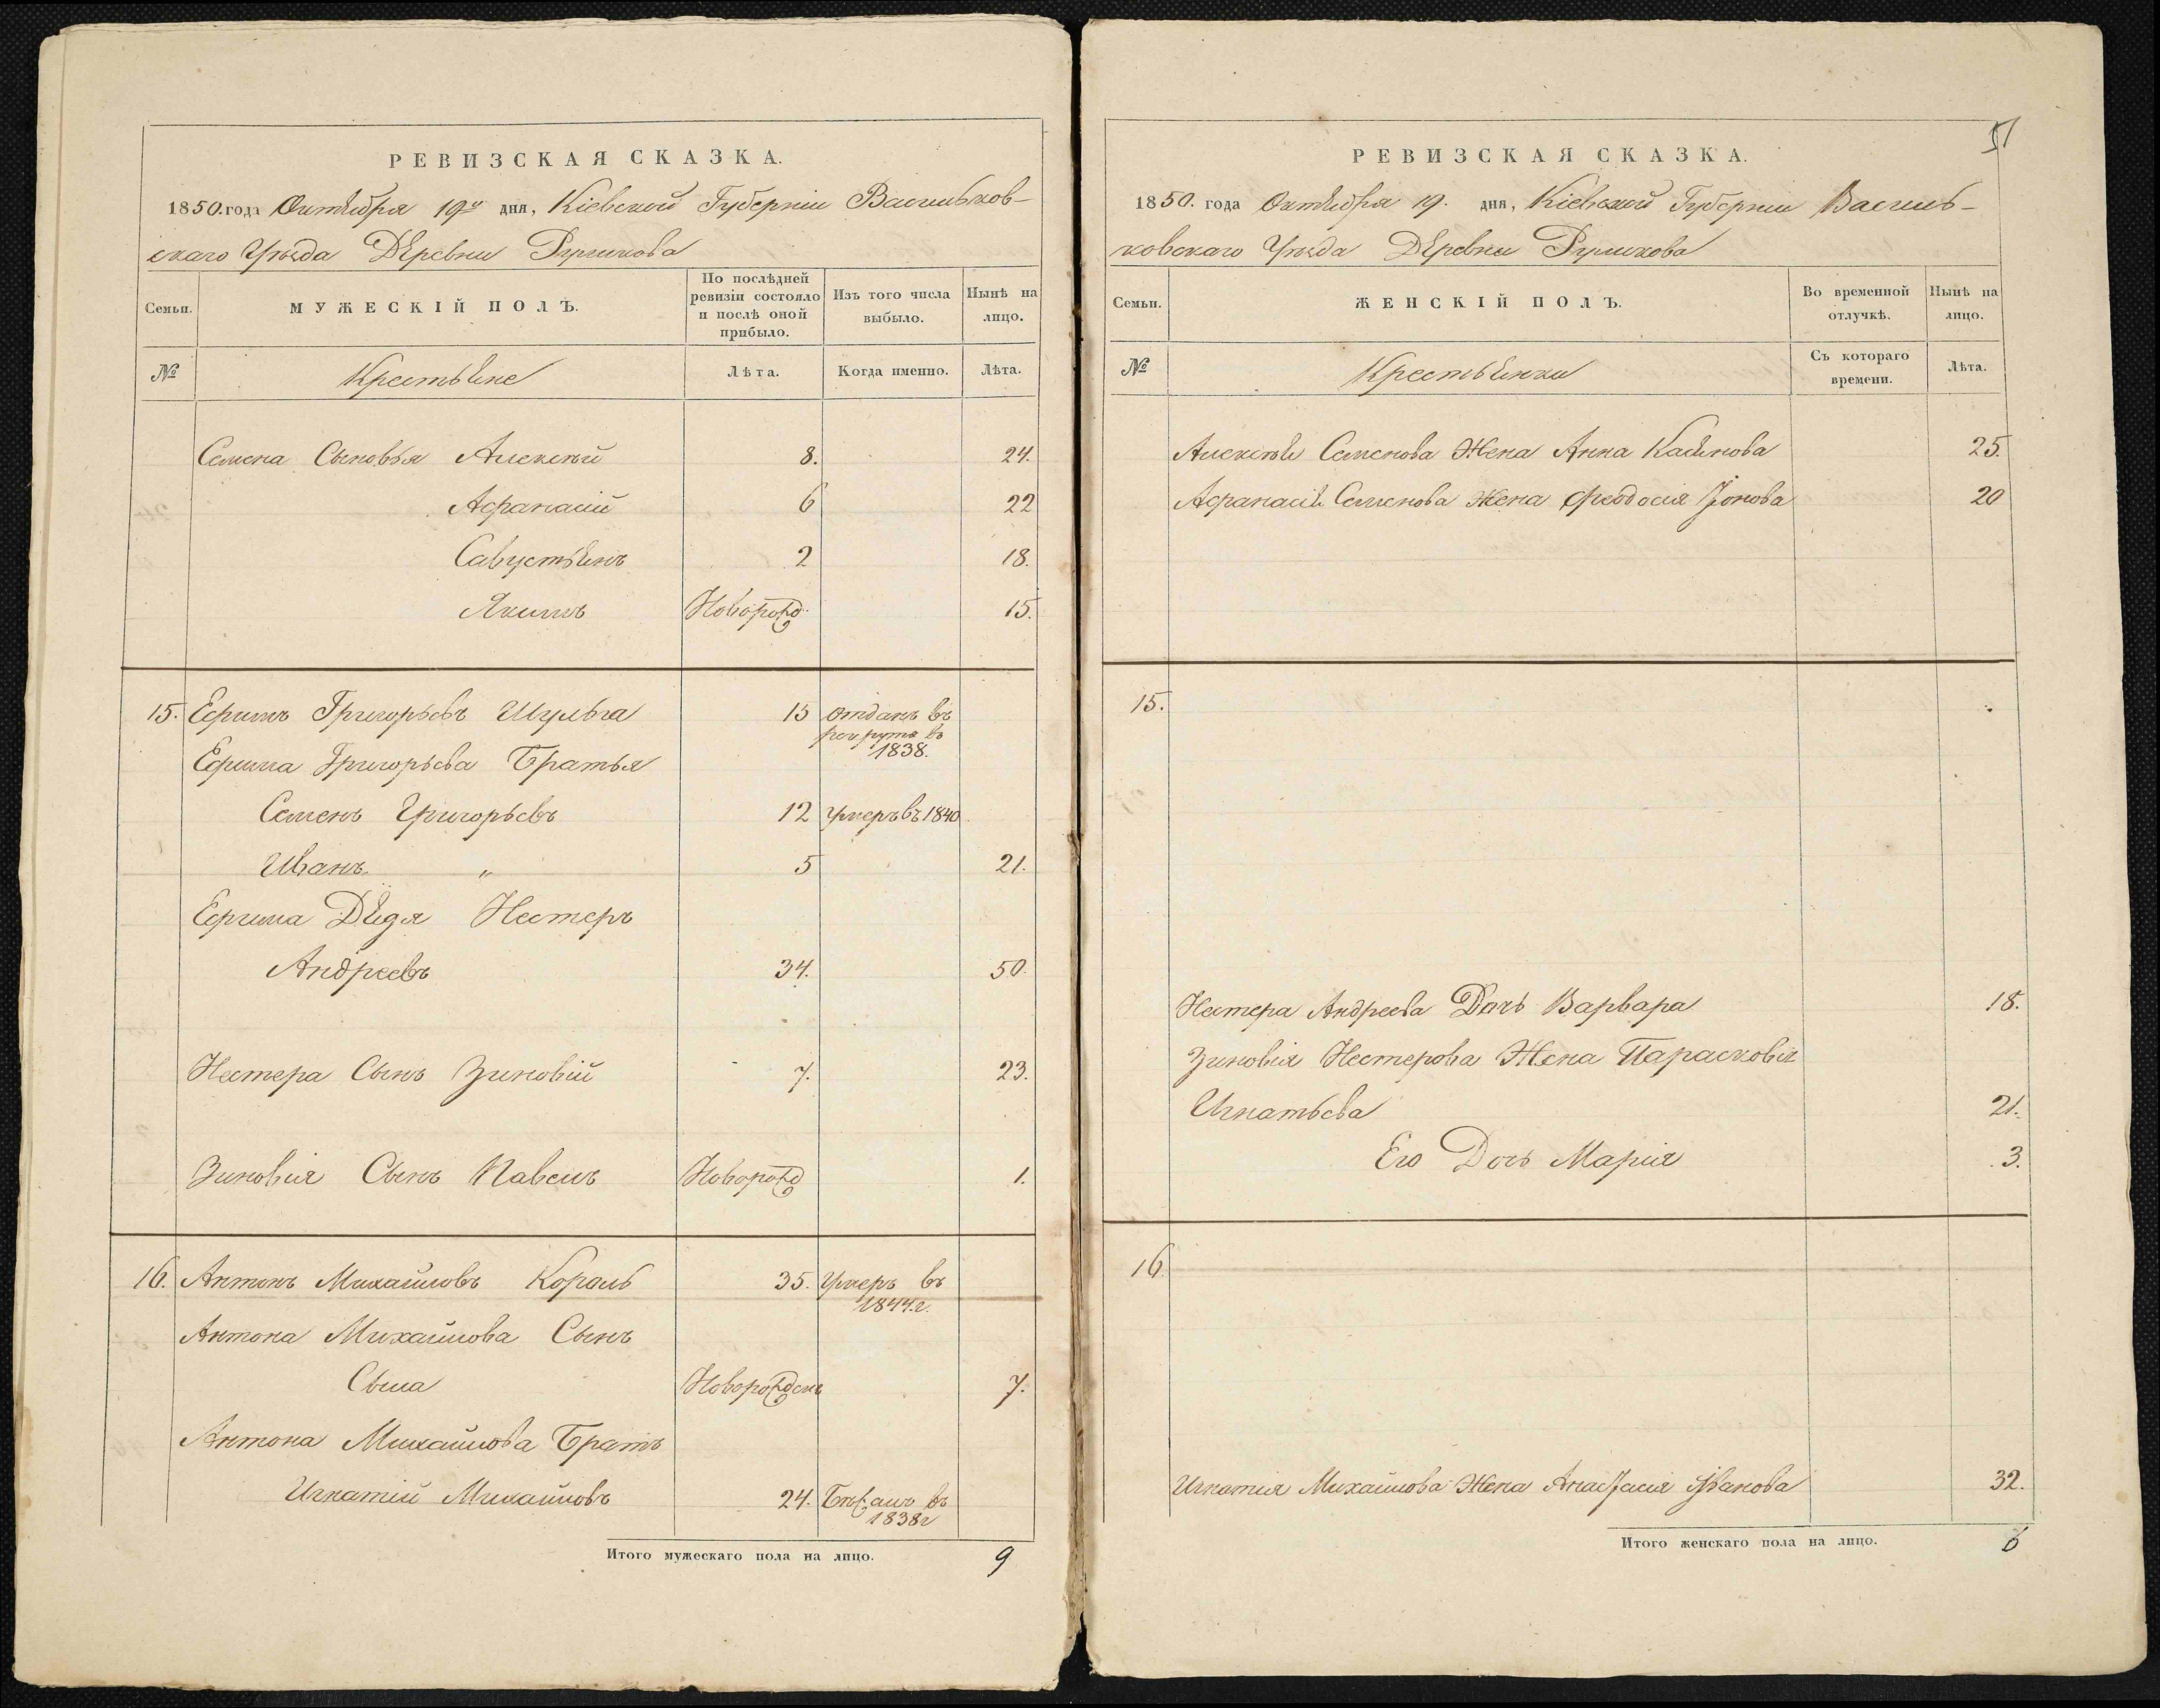 РЕВИЗСКАЯ СКАЗКА.
1850.года Октября 19го дня, Кіевской Губерніи Васильков-
скаго Уѣзда Деревни
Семьи.
МУЖЕСКІЙ ПОЛЪ.
По послѣдней ревизіи состояло и послѣ оной прибыло.
Изъ того числа выбыло.
Нынѣ на лицо.
№
Крестьяне
Лѣта.
Когда именно.
Лѣта.
Семена Сыновья Алексѣй 8. 24.
Афанасій 6 22
Савустьянъ 2 18.
Якимъ Новорожд. 15.
15. Ефимъ Григорьевъ Шульга 15 отданъ въ
рекруты въ
1838.
Ефима Григорьева Братья
Семенъ Григорьевъ 12 Умеръ въ 1840
Иванъ „ 5 21.
Ефима Дядя Нестеръ
Андреевъ 34. 50.
Нестера Сынъ Зиновій 7. 23.
Зиновія Сынъ Павелъ Новорожд 1.
16. Антонъ Михайловъ Король 35. Умеръ въ
1844.г.
Антона Михайлова Сынъ
Сыла Новорожденъ 7.
Антона Михайлова Братъ
Игнатій Михайловъ 24. Бѣжалъ въ
1838г
Итого мужескаго пола на лицо. 9
51
РЕВИЗСКАЯ СКАЗКА.
1850. года Октября 19. дня, Кіевской Губерніи Василь-
ковскаго Уѣзда Деревни
Семьи.
ЖЕНСКІЙ ПОЛЪ.
Во временной отлучкѣ.
Нынѣ на лицо.
№
Крестьянки
Съ котораго времени.
Лѣта.
Алексѣя Семенова Жена Анна 25.
Афанасія Семенова Жена Феодосія Іонова 20
15.
Нестера Андреева Дочь Варвара 18.
Зиновія Нестерова Жена Парасковія
Игнатьева 21.
Его Дочь Марія 3.
16.
Игнатія Михайлова Жена Анастасія Иванова 32.
Итого женскаго пола на лицо. 6